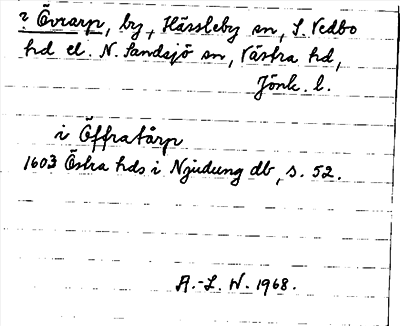 ? Övrarp, by, Hässleby sn, S. Vedbo
hd el. N. Sandsjö sn, Västra hd,
Jönk. l.
i Öffratårp
1603 Östra hds i Njudung db, s. 52.
A.-L. W. 1968.